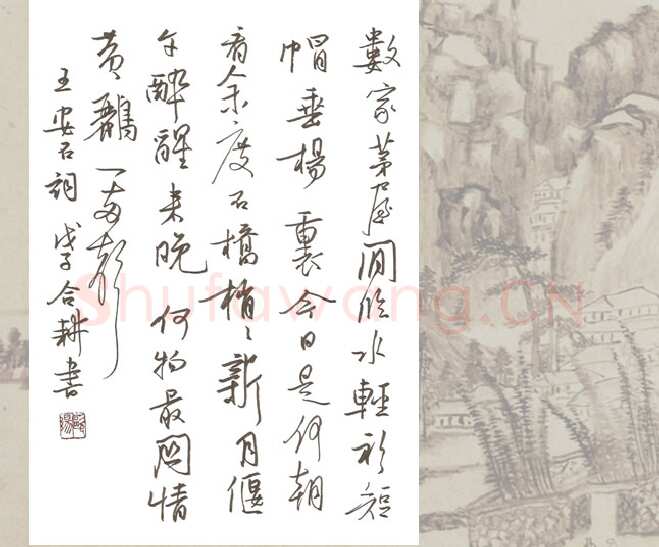 數家茅屋閒临水輕衫短
帽垂楊裏今日是何朝
看余度石橋梢〻新月偃
午醉醒来晚何物最関情
黄鸝一两聲
王安石詞 戊子合耕書
Shufawang.CN